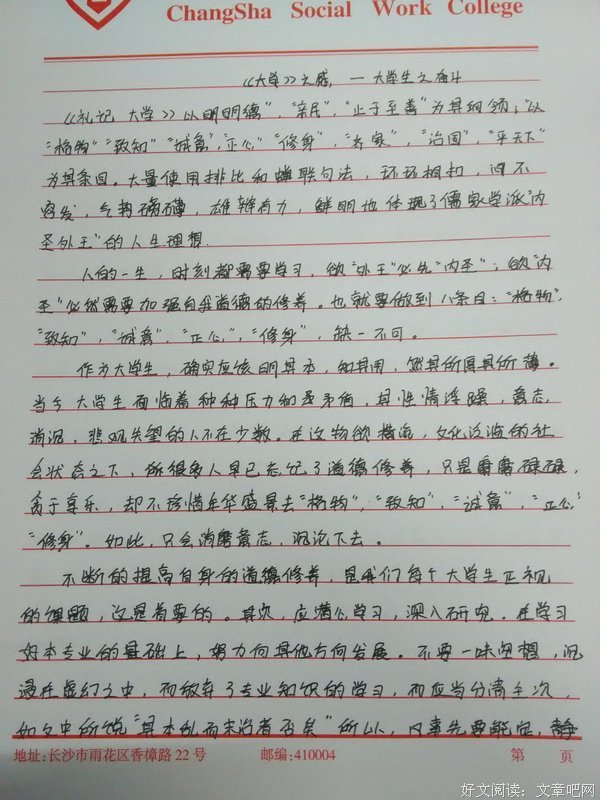 ChangSha Social Work College
《大学》之感，—大学生之奋斗
《礼记 大学》以"明明德"，"亲民"，"止于至善"为其纲领；"以
"格物""致知""诚意"，"正心""修身"，"齐家"，"治国"，"平天下"
为其条目。大量使用排比和蝉联句法，环环相扣，间不
容发，气势磅礴，雄辩有力，鲜明地体现了儒家学派"内
圣外王"的人生理想.
人的一生，时刻都需要学习，欲"外王"必先"内圣"；欲"内
圣"必然需要加强自我道德的修养。也就要做到八条目："格物"，
"致知"，"诚意"，"正心"，"修身"，缺一不可。
作为大学生，确实应该明其本，知其用，然其所厚其所薄。
当今大学生面临着种种压力和矛盾，其性情浮躁，意志
消沉，悲观失望的人不在少数。在这物欲横流，文化泛滥的社
会状态之下，所很多人早已忘记了道德修养，只是庸庸碌碌，
贪于享乐，却不珍惜年华盛景去"格物"，"致知"，"诚意"，"正心"
"修身"。如此，只会消磨意志，沉沦下去。
不断的提高自身的道德修养，是我们每个大学生正视
的课题，这是首要的。其次，应潜心学习，深入研究。在学习
好本专业的基础上，努力向其他方向发展。不要一味空想，沉
浸在虚幻之中，而放弃了专业知识的学习，而应当分清主次，
如文中所说"其本乱而末治者否矣"所以，凡事先要能定，静
地址:长沙市雨花区香樟路 22 号 邮编:410004 第 页
好文阅读：文章吧网